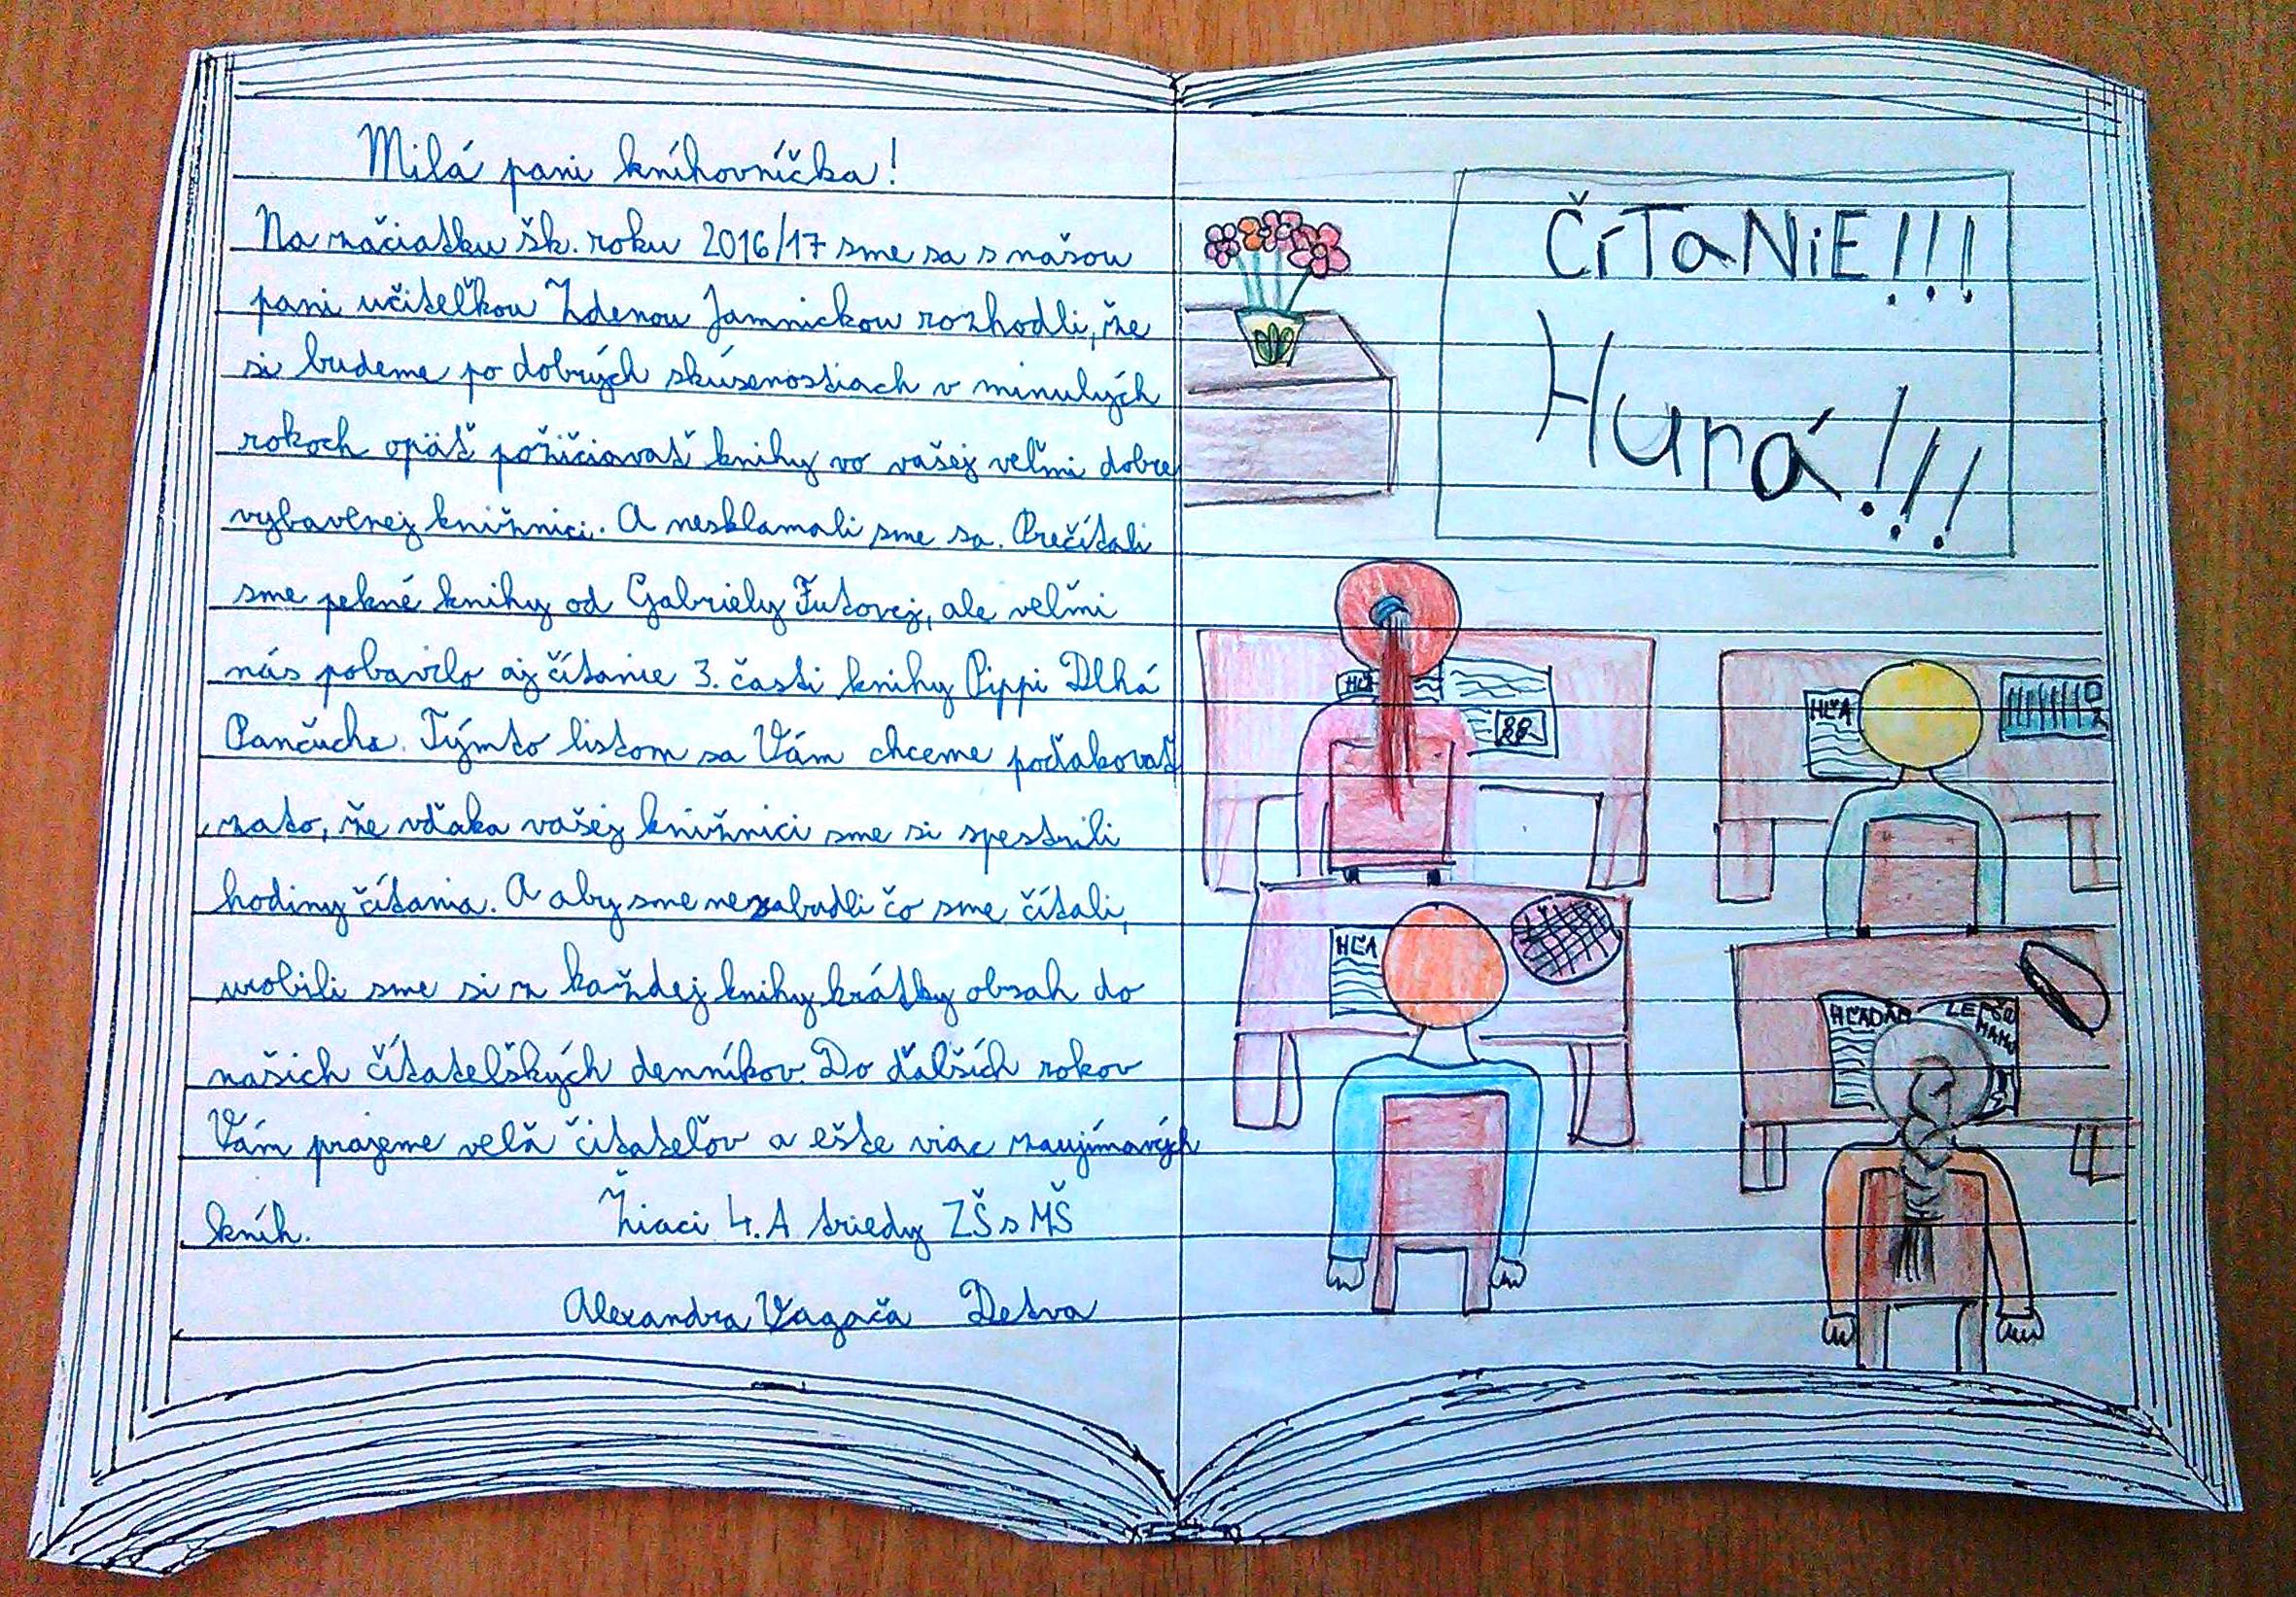 Milá pani kníhovníčka!
Na začiatku šk. roku 2016/17 sme sa s našou
pani učiteľkou Zdenou Jamnickou rozhodli, že
si budeme po dobrých skúsenostiach v minulých
rokoch opäť požičiavať knihy vo vašej veľmi dobre
vybavenej knižnici. A nesklamali sme sa. Prečítali
sme pekné knihy od Gabriely Futovej, ale veľmi
nás pobavilo aj čítanie 3. časti knihy Pippi Dlhá
Pančucha. Týmto listom sa Vám chceme poďakovať
zato, že vďaka vašej knižnici sme si spestrili
hodiny čítania. A aby sme nezabudli čo sme čítali,
urobili sme si z každej knihy krátky obsah do
našich čítateľských denníkov. Do ďalších rokov
Vám prajeme veľa čitateľov a ešte viac zaujímavých
kníh. Žiaci 4. A triedy ZŠ s MŠ
Alexandra Vagača Detva
ČíTaNiE!!!
Hurá!!!
HĽA
HĽA
HĽADÁM LEPŠIU
MAMU